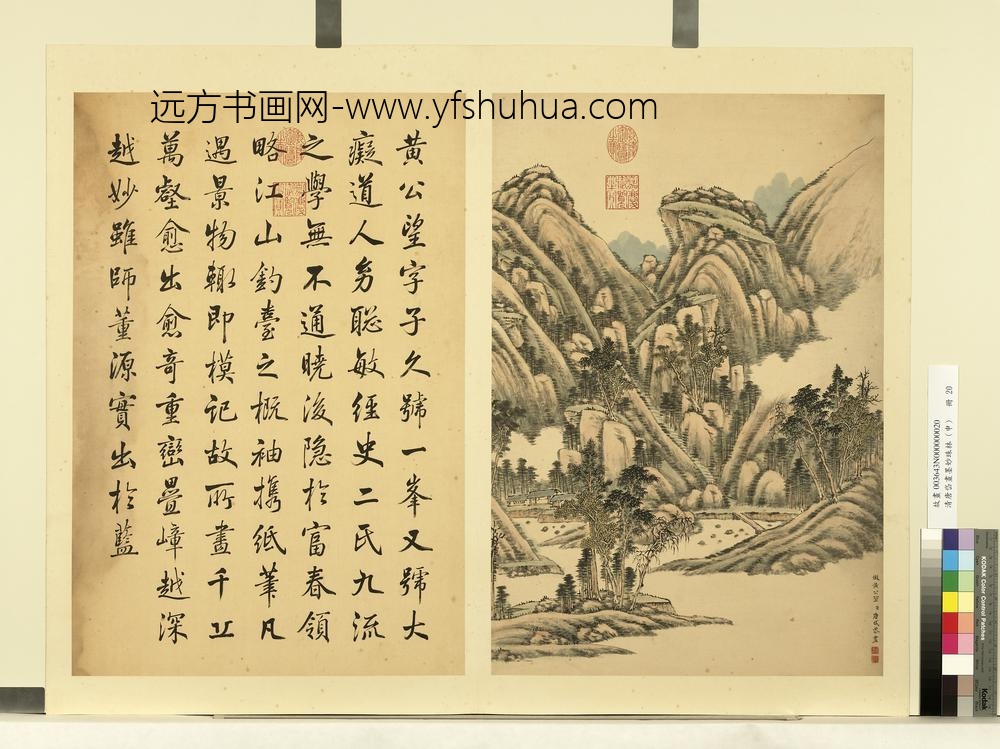 远方书画网-www.yfshuhua.com
黄公望字子久號一峯又號大
癡道人夯聡敏經史二氏九流
之學無不通曉後隐於富春領
略江山釣臺之概袖携紙筆凡
遇景物輙即模记故所畫千丘
萬壑愈出愈奇重巒疊嶂越深
越妙雖師董源實出於藍
故畫 003643N000000020
清唐岱畫墨妙珠林(申) 冊 20
KODAK Color Control Patches
Kodak